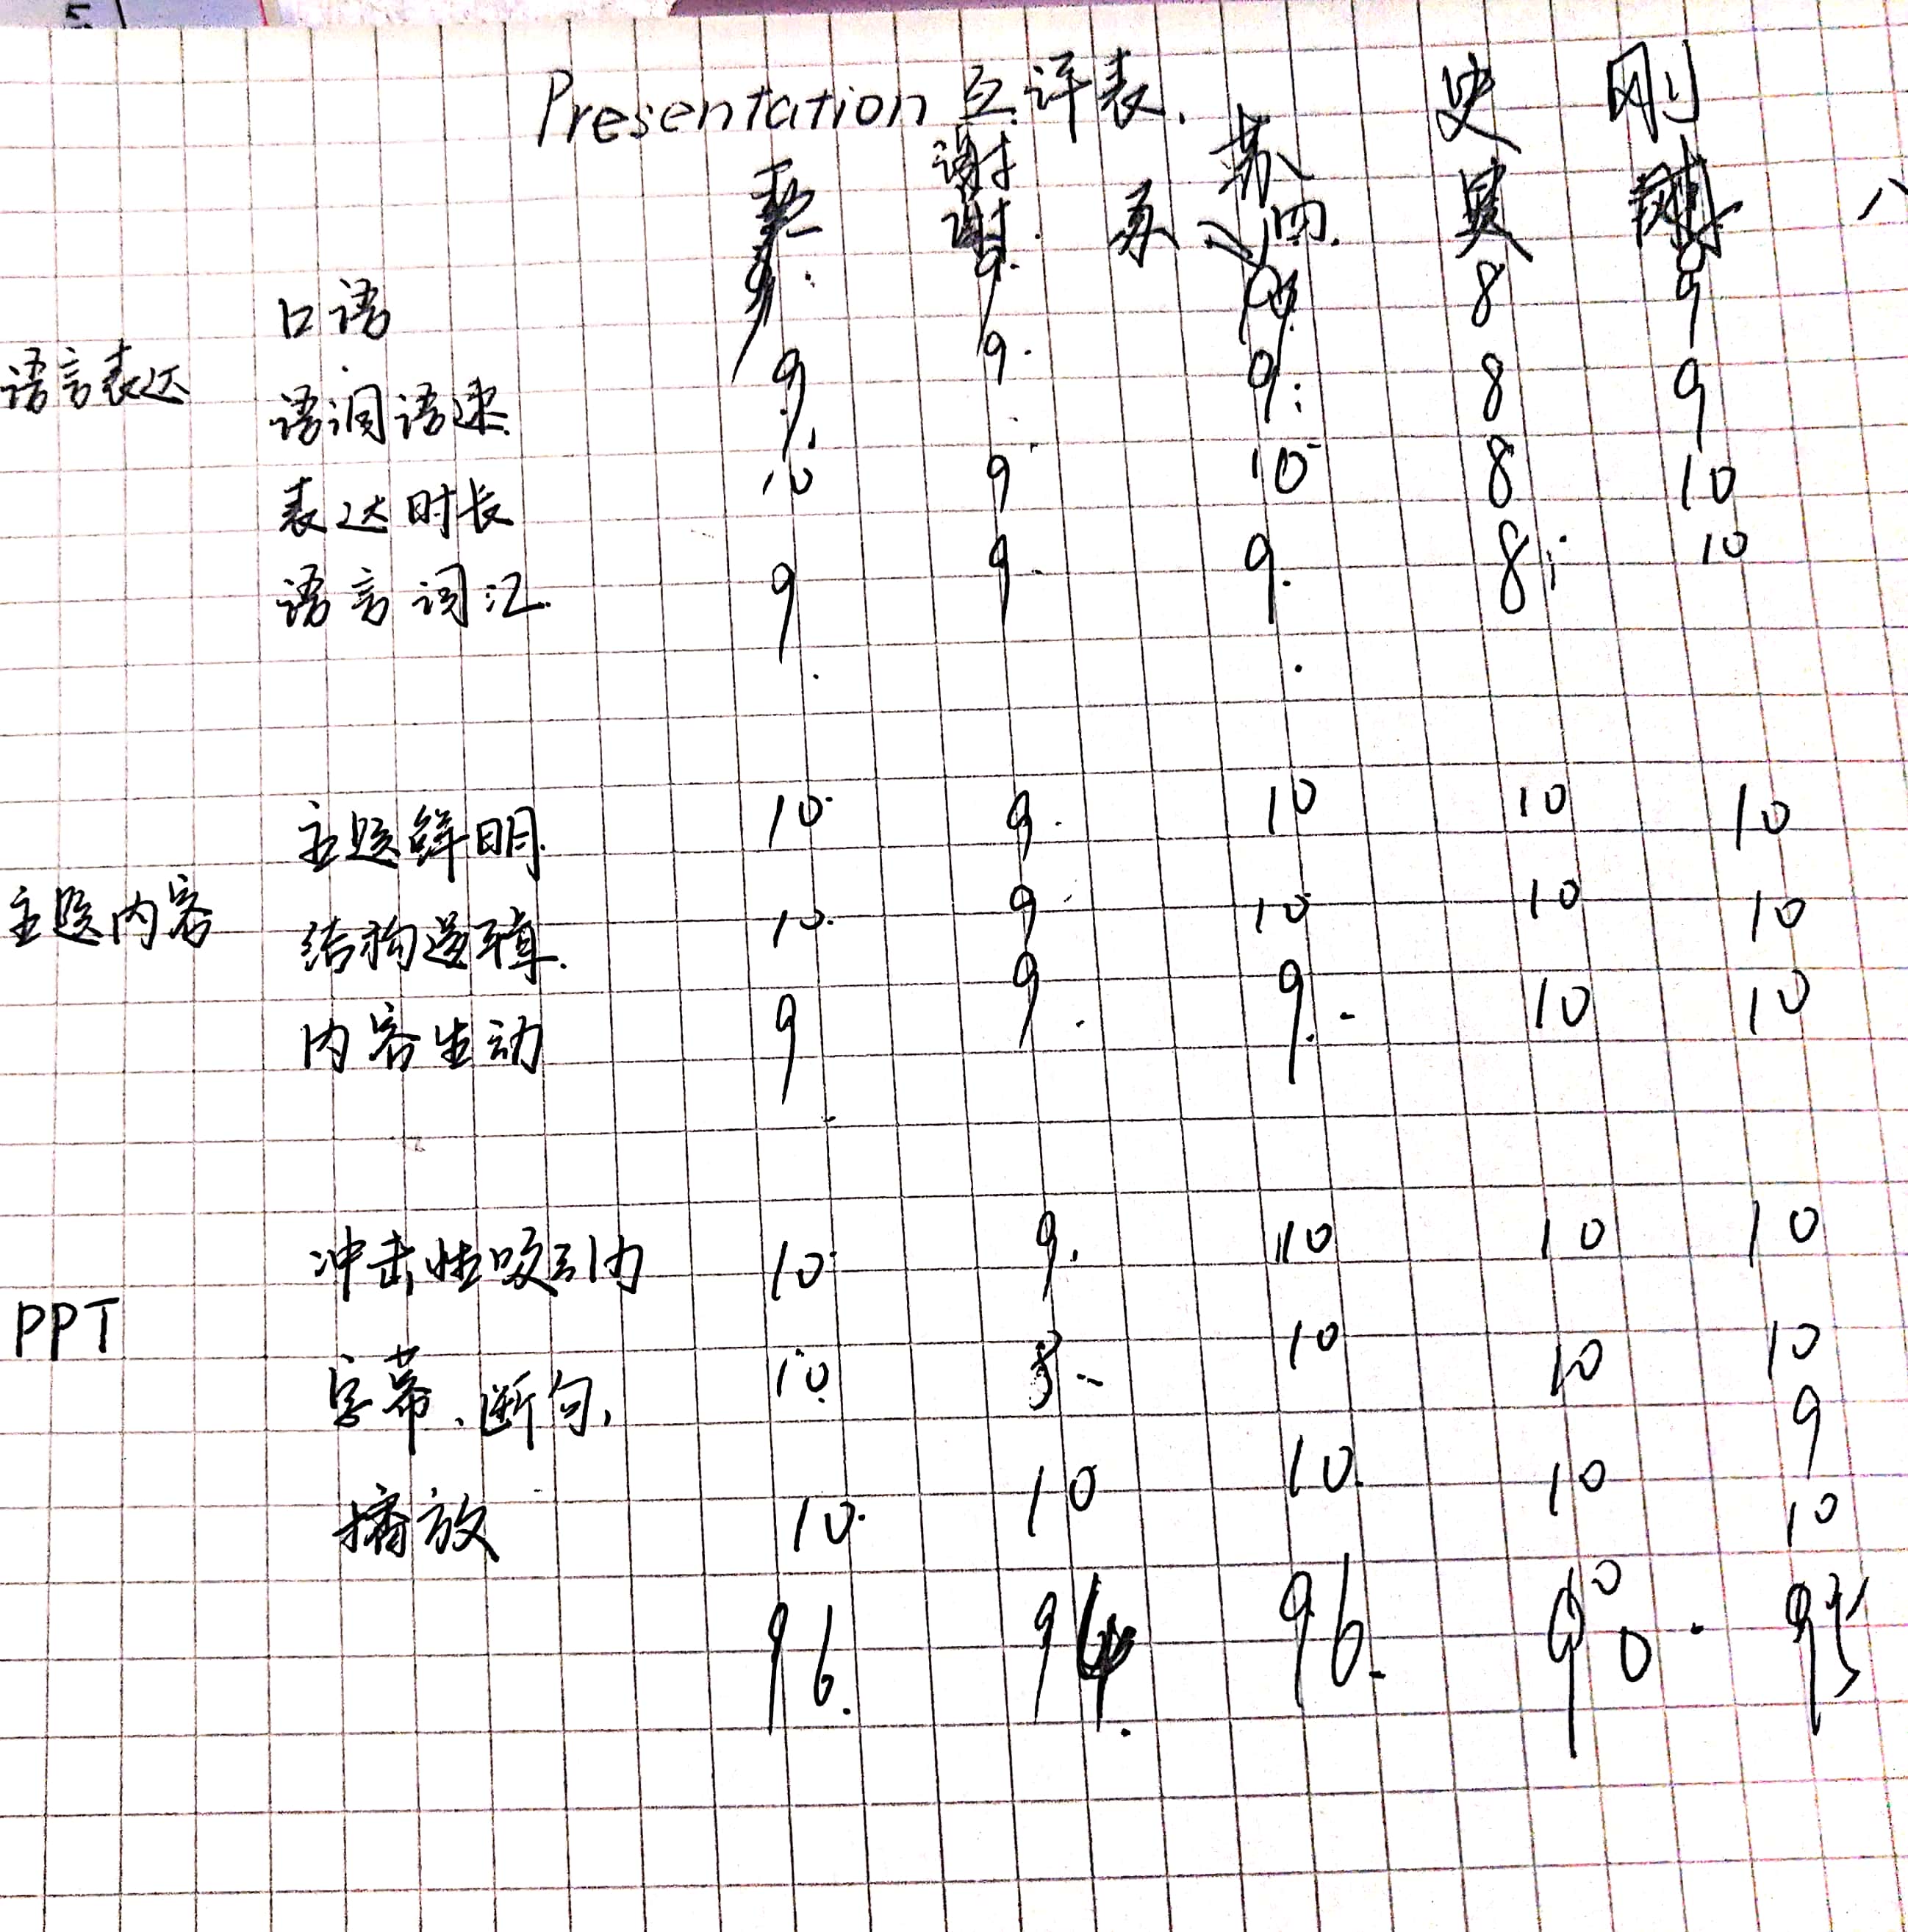 Presentation 互评表. 史 刚
谢 苏
谢. 四. 昊
口语 9. 8 9
语言表达
语调语速. 9 9. 9: 8 9
表达时长 10 9 10 8 10
语言词汇. 9 9. 9. 8 10
主题鲜明. 10 9. 10 10 10
主题内容
结构逻辑. 10. 9 10 10 10
内容生动 9 9. 9. 10 10
冲击性吸引力 10 9. 10 10 10
PPT
字幕、断句, 10 8 10 10 10
9
播放 10. 10 10. 10 10
96. 94. 96. 90.